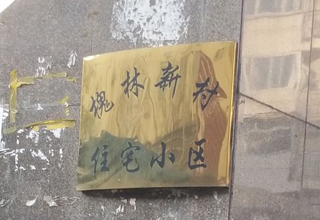 槐林新村
住宅小区